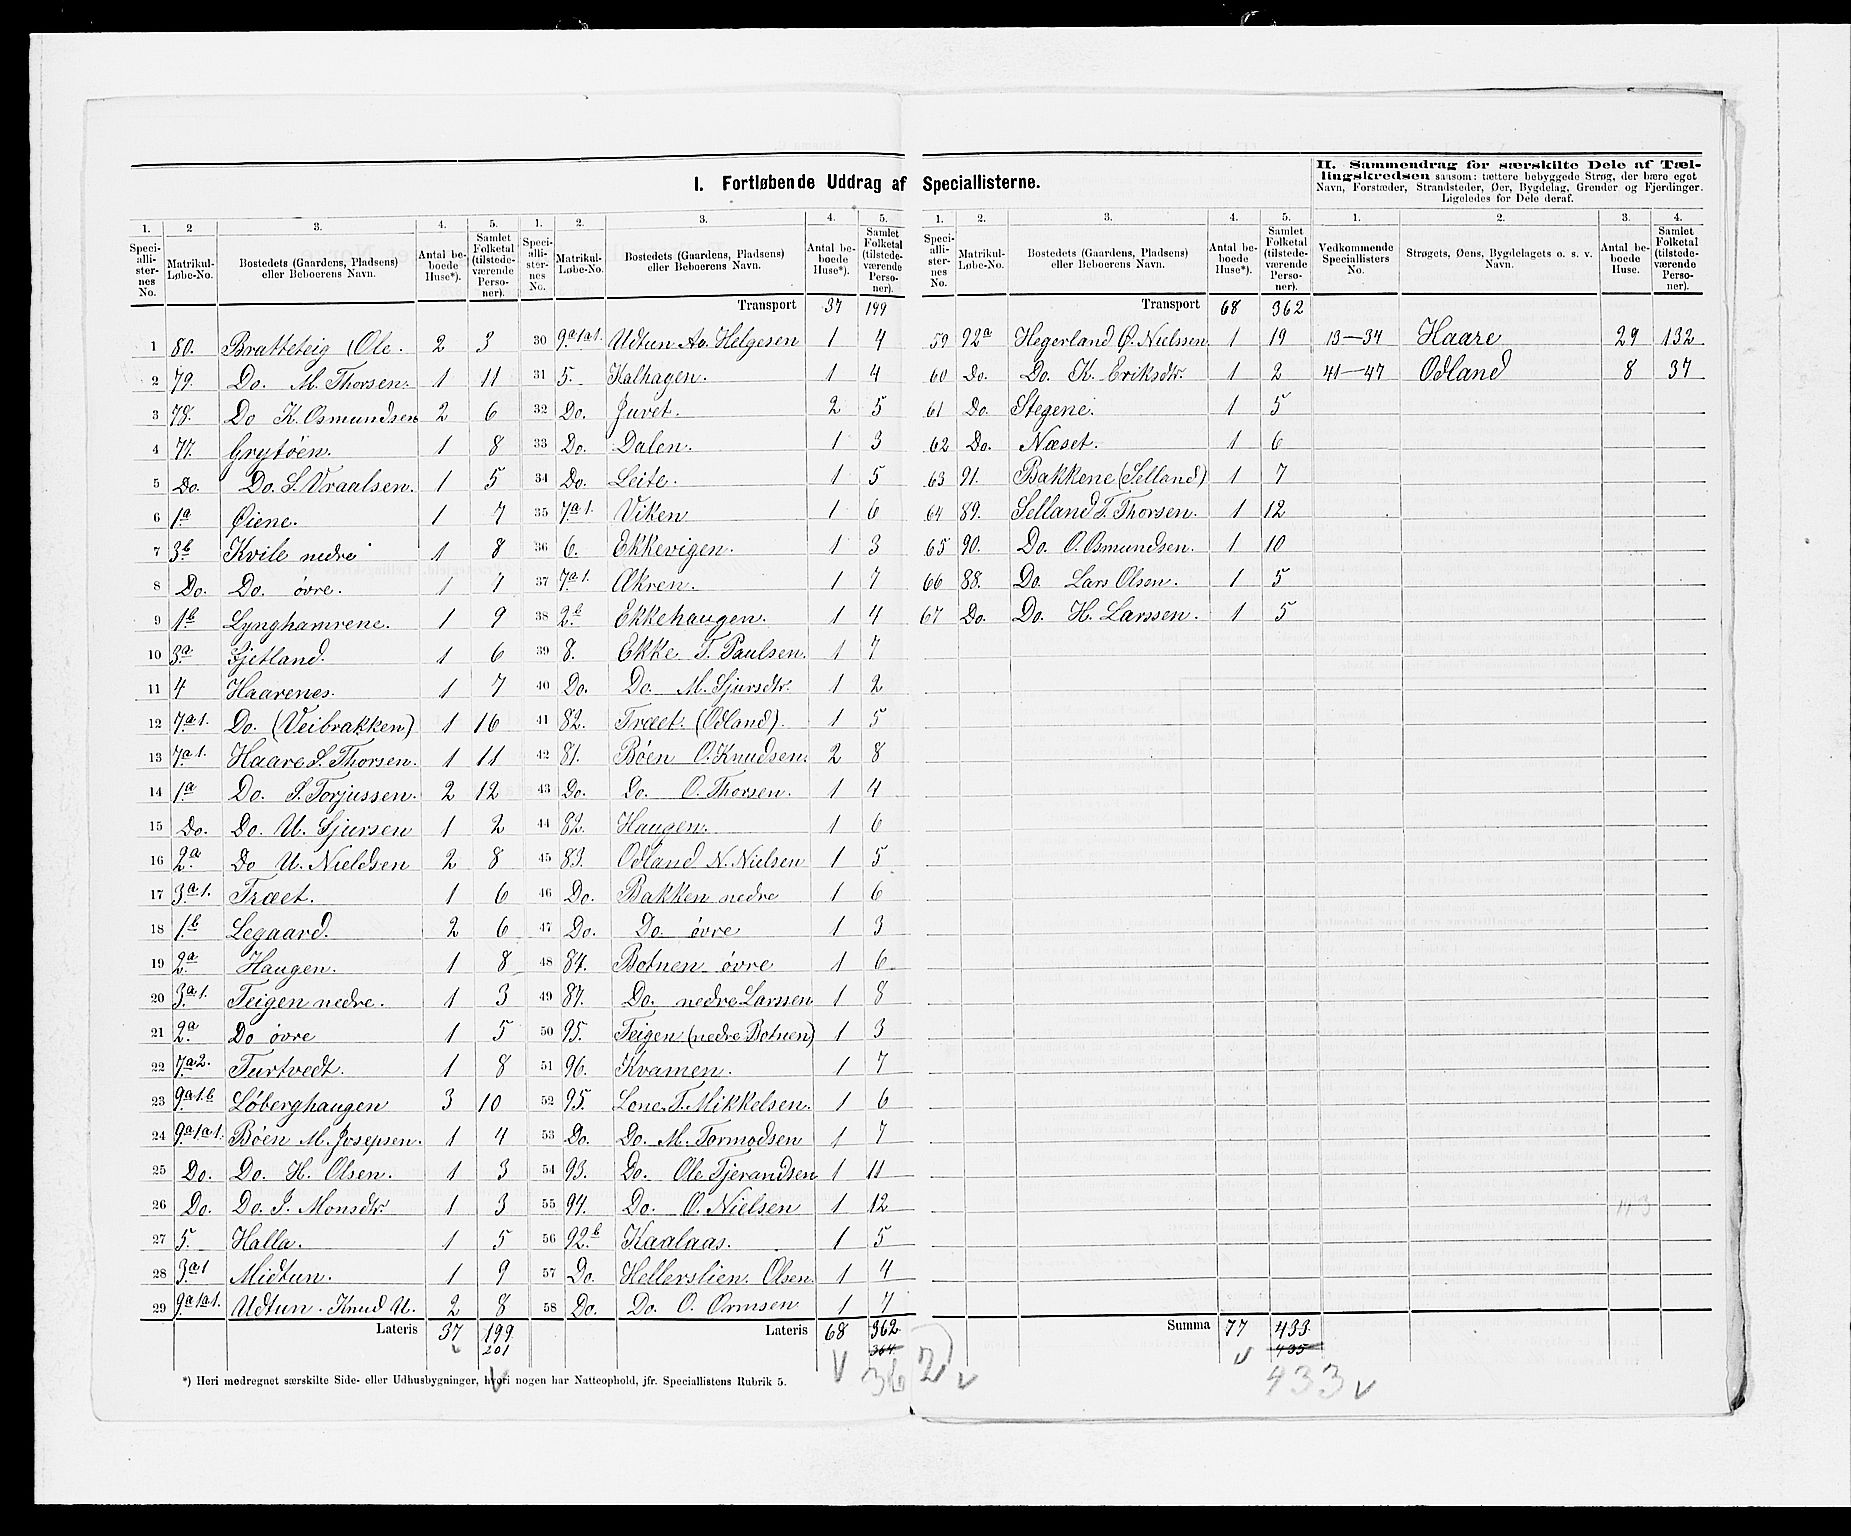 I. Fortløbende Uddrag af Speciallisterne.
II. Sammendrag for særskilte Dele af Tællingskredsen saasom: tættere bebyggede Strøg, der bære eget
Navn, Forstæder, Strandsteder, Øer, Bygdelag, Grender og Fjerdinger.
Ligeledes for Dele deraf.
1. 2 3. 4. 5. 1. 2. 3. 4. 5. 1. 2. 3. 4. 5. 1. 2. 3. 4.
Speciallisternes No. Matrikul-Løbe-No. Bostedets (Gaardens, Pladsens) eller Beboerens Navn. Antal beboede Huse*). Samlet Folketal (tilstedeværende Personer).
Speciallisternes No. Matrikul-Løbe-No. Bostedets (Gaardens, Pladsens) eller Beboerens Navn. Antal beboede Huse*). Samlet Folketal (tilstedeværende Personer).
Speciallisternes No. Matrikul-Løbe-No. Bostedets (Gaardens, Pladsens) eller Beboerens Navn. Antal beboede Huse*). Samlet Folketal (tilstedeværende Personer).
Vedkommende Speciallisters No. Strøgets, Øens, Bygdelagets o. s. v. Navn. Antal beboede Huse. Samlet Folketal (tilstedeværende Personer).
1 80. Bratteteig (Ole. 2 3
2 79. Do. M. Thorsen. 1 11
3 78. Do K. Osmundsen 2 6
4 77. Grytøen. 1 8
5 Do. Do. S. Vraalsen. 1 5
6 1a Øiene. 1 7
7 3b Kvile nedre 1 8
8 Do. Do. øvre. 1 7
9 1b Lynghamrene. 1 9
10 3a Fjetland. 1 6
11 4 Haarenes. 1 7
12 7a1. Do. (Veibrakken) 1 16
13 7a1. Haare S. Thorsen. 1 11
14 1a Do. S. Torjussen. 2 12
15 Do. Do. U. Sjursen 1 2
16 2a Do U. Nieldsen 2 8
17 3a1. Træet. 1 6
18 1b Legaard. 2 6
19 2a Haugen. 1 8
20 3a1. Teigen nedre. 1 3
21 2a Do øvre 1 5
22 7a2. Turtvedt. 1 8
23 9a1b Løberghaugen 3 10
24 9a1a1. Bøen M. Josepsen. 1 4
25 Do. Do. H. Olsen. 1 3
26 Do. Do. J. Monsdtr. 1 3
27 5. Halla. 1 5
28 3a1 Midtun. 1 9
29 9a1a1. Udtun. Knud U. 2 8
Lateris 37 199
201
Transport 37 199
30 9a1a1. Udtun Av. Helgesen 1 4
31 5. Kalhagen. 1 4
32 Do. Juvet. 2 5
33 Do. Dalen. 1 3
34 Do. Leite. 1 5
35 7a1. Viken 1 6
36 6. Ekkevigen. 1 3
37 7a1. Ækren. 1 7
38 2b Ekkehaugen. 1 4
39 8. Ekke T. Paulsen. 1 7
40 Do. Do. M. Sjursdtr. 1 2
41 82. Træet. (Odland). 1 5
42 81. Bøen O. Knudsen. 2 8
43 Do. Do. O. Thorsen. 1 4
44 82. Haugen. 1 6
45 83. Odland N. Nielsen 1 5
46 Do. Bakken nedre 1 6
47 Do. Do. øvre 1 3
48 84. Botnen øvre 1 6
49 87. Do. nedre Larssen 1 8
50 95. Teigen (nedre Botnen) 1 3
51 96. Kvamen. 1 7
52 95. Lone T. Mikkelsen. 1 6
53 Do. Do. M. Tormodsen 1 7
54 93. Do. Ole Tjerandsen 1 11
55 94. Do. O. Nielsen 1 12
56 92b Kaalaas. 1 5
57 Do. Hellerslien. Olsen. 1 4
58 Do. Do. O. Ormsen 1 7
Lateris 68 362
364
362
Transport 68 362
59 92a Hegerland Ø. Nielssen 1 19
60 Do. Do. K. Eriksdtr. 1 2
61 Do. Stegene. 1 5
62 Do. Næset. 1 6
63 91. Bakkene (Selland) 1 7
64 89. Selland T. Thorsen. 1 12
65 90. Do. O. Osmundsen. 1 10
66 88. Do. Lars Olsen. 1 5
67 Do. Do. H. Larssen. 1 5
Summa 77 433
435
433
13—34 Haare 29 132
41—47 Odland 8 37
*) Heri medregnet særskilte Side- eller Udhusbygninger, hvori nogen har Natteophold, jfr. Speciallistens Rubrik 5.